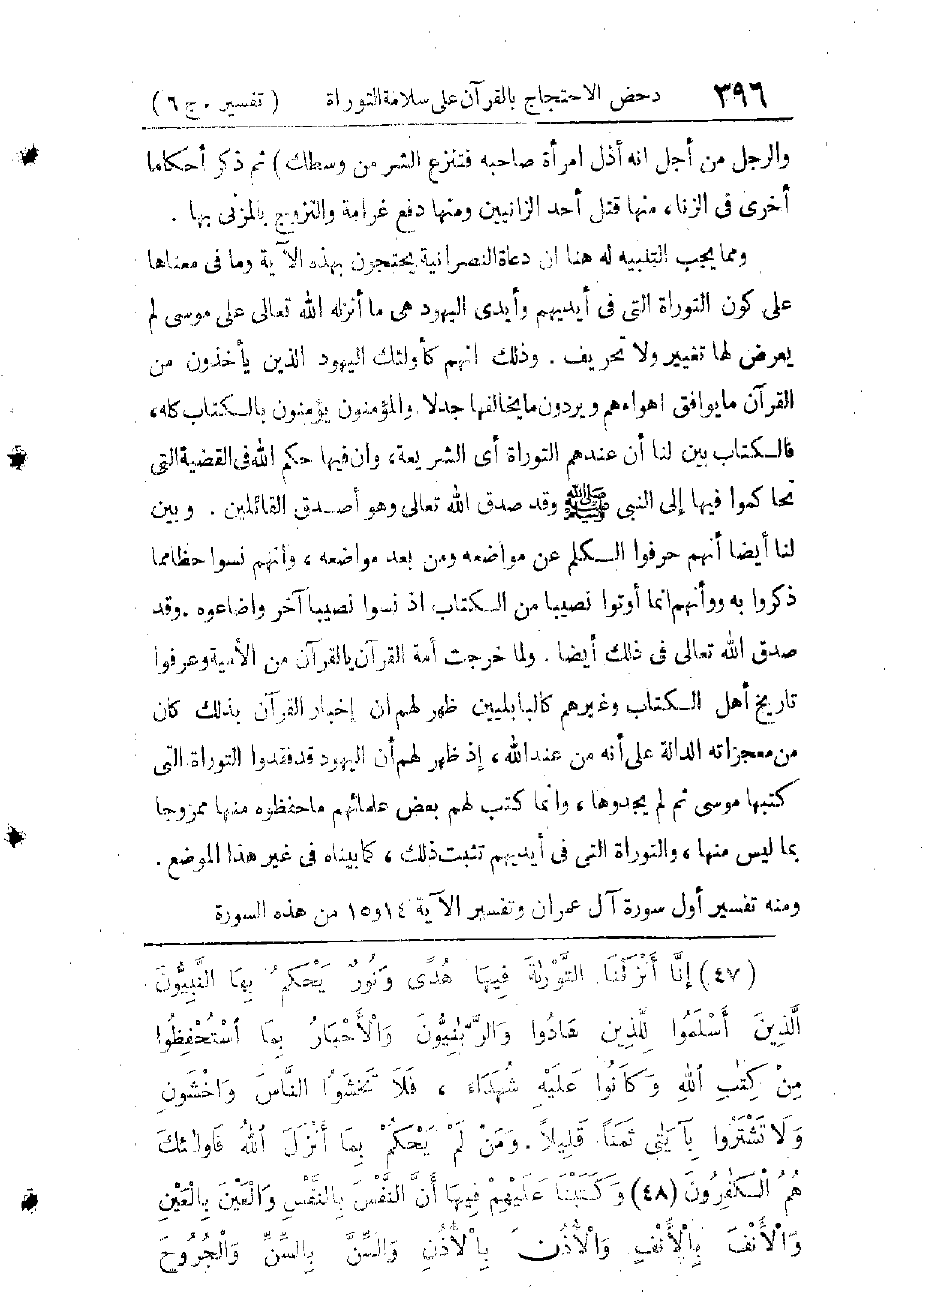 ٣٩٦ دحض الاحتجاج بالقرآن على سلامة التوراة ( تفسير . ج ٦ )
والرجل من أجل انه أذل امرأة صاحبه فتنزع الشر من وسطك ) ثم ذكر أحكاما
أخرى فى الزنا ، منها قتل أحد الزانيين ومنها دفع غرامة والتزوج بالمزنى بها .
ومما يجب التنبيه له هنا ان دعاة النصرانية يحتجون بهذه الآية وما فى معناها
على كون التوراة التى فى أيديهم وأيدى اليهود هى ما أنزله الله تعالى على موسى لم
يعرض لها تغيير ولا تحريف . وذلك انهم كأولئك اليهود الذين يأخذون من
القرآن ما يوافق اهواءهم ويردون ما يخالفها جدلا والمؤمنون يؤمنون بالكتاب كله ،
فالكتاب بين لنا أن عندهم التوراة أى الشريعة ، وان فيها حكم الله فى القضية التى
تحاكموا فيها إلى النبى ﷺ وقد صدق الله تعالى وهو أصدق القائلين . وبين
لنا أيضا أنهم حرفوا الكلم عن مواضعه ومن بعد مواضعه ، وانهم نسوا حظا مما
ذكروا به ووأنهم انما أوتوا نصيبا من الكتاب اذ نسوا نصيبا آخر واضاعوه . وقد
صدق الله تعالى فى ذلك أيضا . ولما خرجت أمة القرآن بالقرآن من الأمية وعرفوا
تاريخ أهل الكتاب وغيرهم كالبابليين ظهر لهم ان إخبار القرآن بذلك كان
من معجزاته الدالة على أنه من عند الله ، إذ ظهر لهم أن اليهود قد فقدوا التوراة التى
كتبها موسى ثم لم يجدوها ، وانما كتب لهم بعض علمائهم ما حفظوه منها ممزوجا
بما ليس منها ، والتوراة التى فى أيديهم تثبت ذلك ، كما بيناه فى غير هذا الموضع .
ومنه تفسير أول سورة آل عمران وتفسير الآية ١٤ و١٥ من هذه السورة
(٤٧) إِنَّا أَنْزَلْنَا التَّوْرٰةَ فِيهَا هُدًى وَنُورٌ يَحْكُمُ بِهَا النَّبِيُّونَ
الَّذِينَ أَسْلَمُوا لِلَّذِينَ هَادُوا وَالرَّبّٰنِيُّونَ وَالْأَحْبَارُ بِمَا اسْتُحْفِظُوا
مِنْ كِتٰبِ اللهِ وَكَانُوا عَلَيْهِ شُهَدَاءَ ، فَلَا تَخْشَوُا النَّاسَ وَاخْشَوْنِ
وَلَا تَشْتَرُوا بِآيٰتِى ثَمَنًا قَلِيلاً . وَمَنْ لَمْ يَحْكُمْ بِمَا أَنْزَلَ اللهُ فَأُولٰئِكَ
هُمُ الْكٰفِرُونَ (٤٨) وَكَتَبْنَا عَلَيْهِمْ فِيهَا أَنَّ النَّفْسَ بِالنَّفْسِ وَالْعَيْنَ بِالْعَيْنِ
وَالْأَنْفَ بِالْأَنْفِ وَالْأُذُنَ بِالْأُذُنِ وَالسِّنَّ بِالسِّنِّ وَالْجُرُوحَ